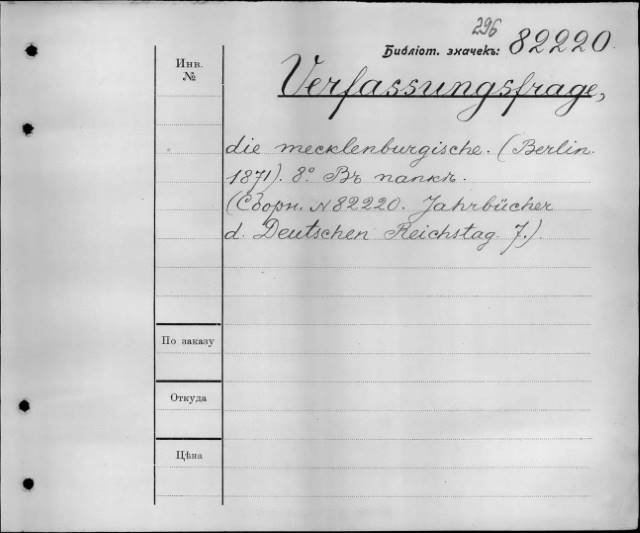 296
Библіот. значекъ: 82220
Инв.
№
Verfassungsfrage,
die mecklenburgische. (Berlin.
1871). 8° Въ папкѣ.
(Сборн. N 82220. Jahrbücher
d. Deutschen Reichstag 7.)
По заказу
Откуда
Цѣна